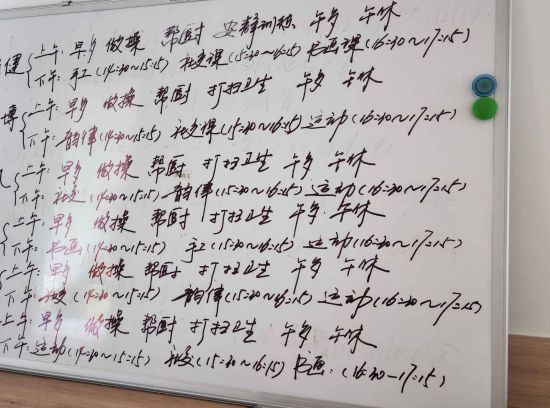 健 上午: 早多 做操 帮厨 安静训练 午多 午休
下午: 手工(14:30~15:15) 社交课(15:30~16:15) 书画课(16:30~17:15)
博 上午: 早多 做操 帮厨 打扫卫生 午多 午休
下午: 韵律(14:30~15:15) 社交课(15:30~16:15) 运动(16:30~17:15)
上午: 早多 做操 帮厨 打扫卫生 午多 午休
下午: 社交(14:30~15:15) 韵律(15:30~16:15) 运动(16:30~17:15)
上午: 早多 做操 帮厨 打扫卫生 午多 午休
下午: 书画(14:30~15:15) 手工(15:30~16:15) 运动(16:30~17:15)
上午: 早多 做操 帮厨 打扫卫生 午多 午休
下午: 社交(14:30~15:15) 韵律(15:30~16:15) 运动(16:30~17:15)
上午: 早多 做操 帮厨 打扫卫生 午多 午休
下午: 运动(14:30~15:15) 社交(15:30~16:15) 书画: (16:30-17:15)